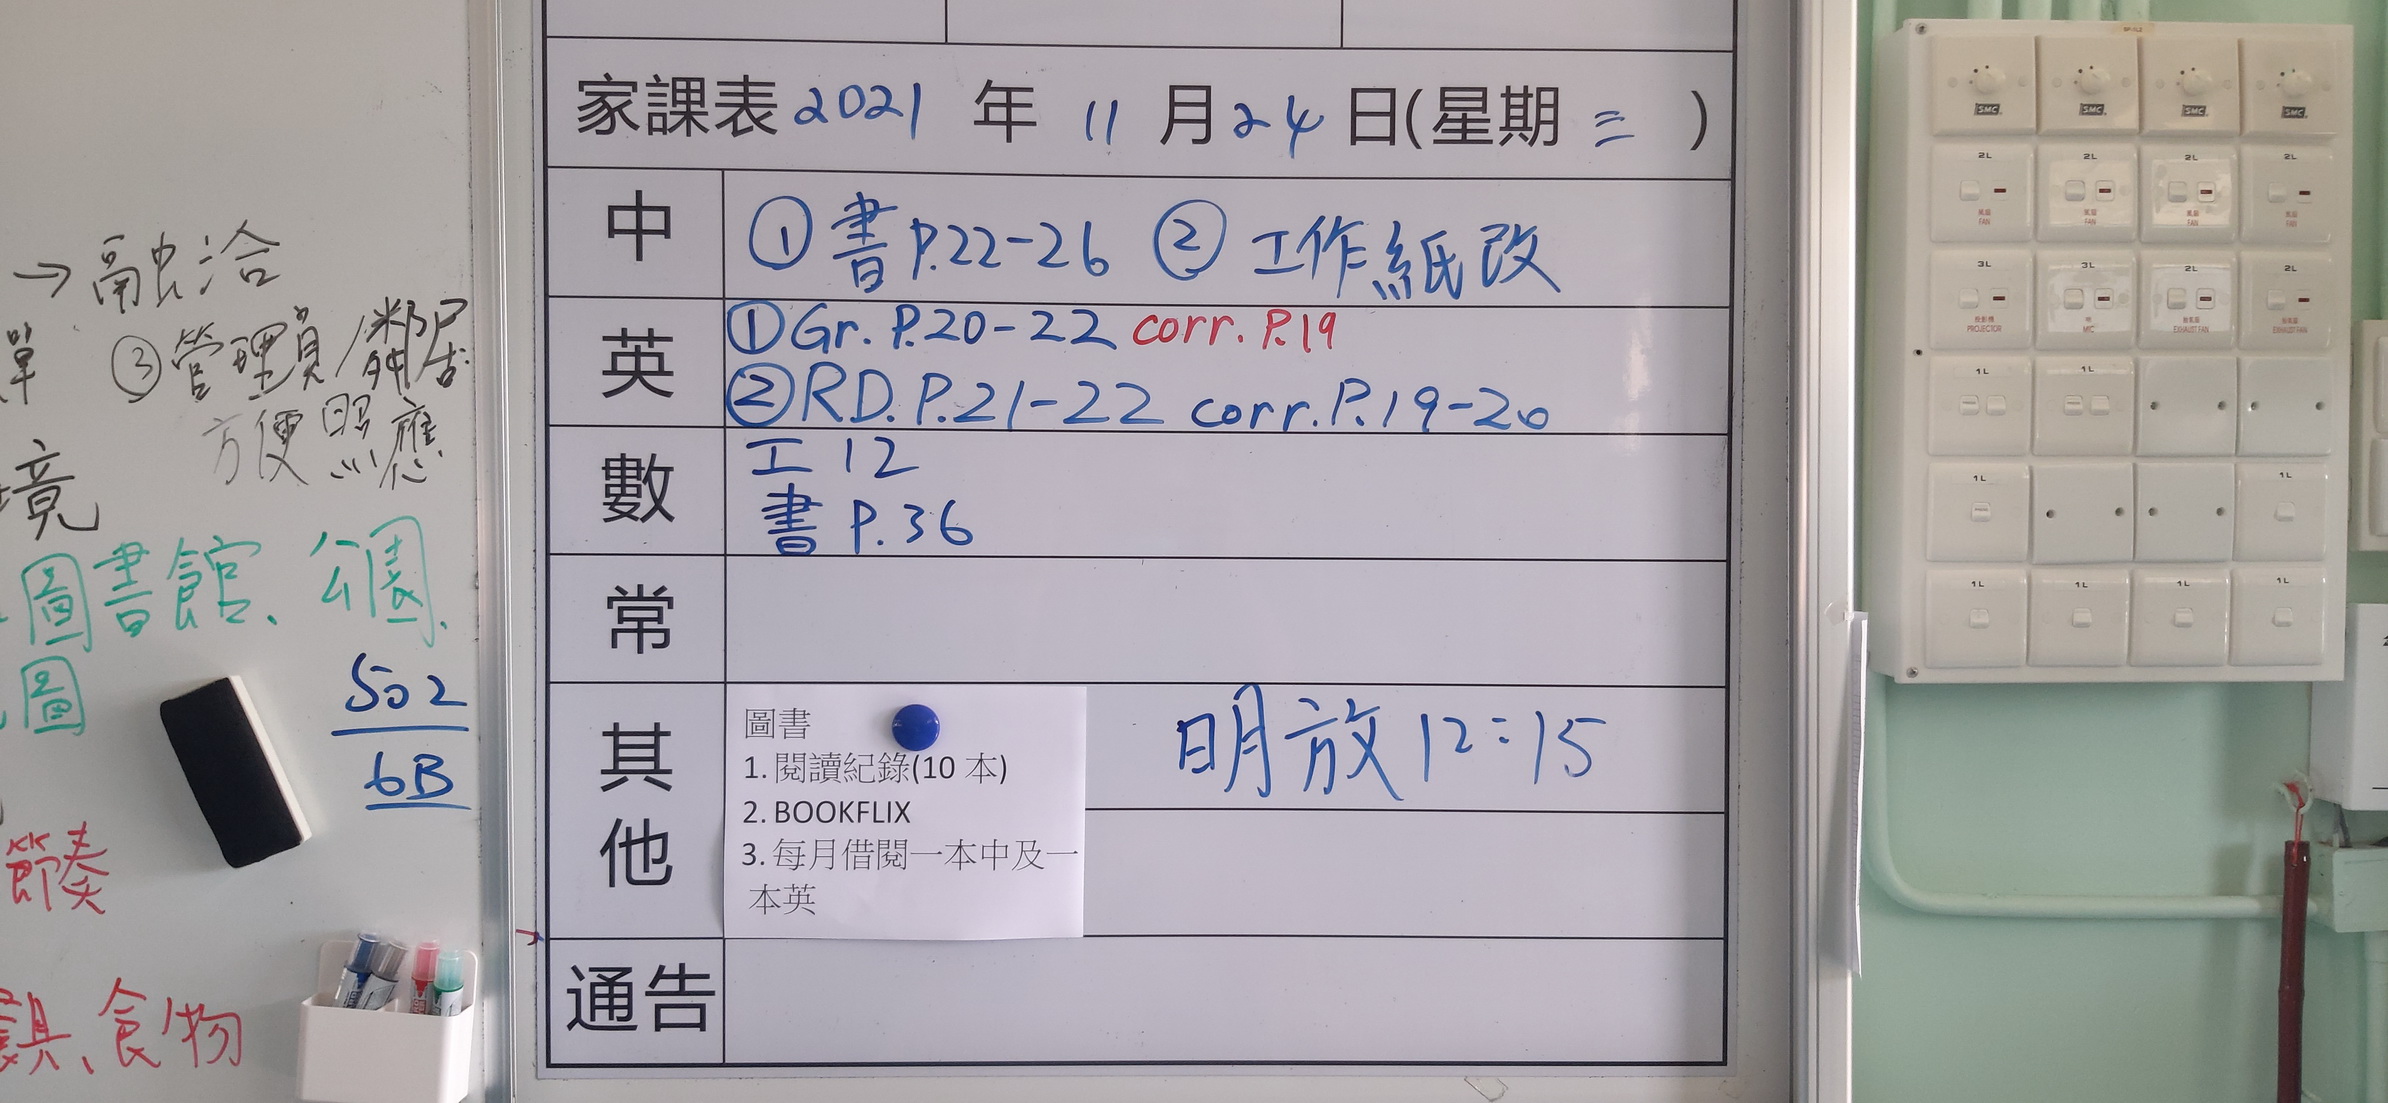 →融洽
單 ③管理員/鄰居
方便照應
境
圖書館、公園、
圖
502
6B
節奏
食物
家課表 2021 年 11 月 24 日(星期 三 )
中 ①書P.22-26 ②工作紙改
英 ①Gr. P.20-22 corr. P.19
②RD. P.21-22 corr. P.19-20
數 工12
書 P.36
常
其他
圖書
1. 閱讀紀錄(10 本)
2. BOOKFLIX
3. 每月借閱一本中及一
本英
明放 12:15
通告
SMC SMC SMC SMC
2L 2L 2L 2L
風扇 風扇 風扇 風扇
FAN FAN FAN FAN
3L 3L 2L 2L
投影機 咪 抽氣扇 抽氣扇
PROJECTOR MIC EXHAUST FAN EXHAUST FAN
1L 1L
1L 1L
1L 1L 1L 1L